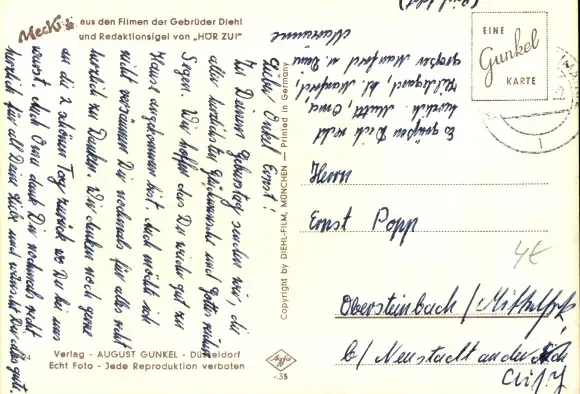 Mecki
aus den Filmen der Gebrüder Diehl
und Redaktionsigel von „HÖR ZU!“
EINE
Gunkel
KARTE
Lieber Onkel Ernst!
Zu Deinem Geburtstag senden wir, die
allerherzlichsten Glückwünsche und Gottes reichsten
Segen. Wir hoffen das Du wieder gut zu
Hause angekommen bist. Auch möcht ich
nicht versäumen Dir nochmals für alles recht
herzlich zu Danken. Wir denken noch gerne
an die 2 schönen Tag zurück wo Du bei uns
warst. Auch Oma dankt Dir nochmals recht
herzlich für all Deine Liebe und wünscht Dir alles gute.
Es grüßen Dich recht
herzlich Mutti, Oma
Hildegard, kl. Manfred,
großer Manfred u. Deine
Marianne
Copyright by DIEHL-FILM, MÜNCHEN — Printed in Germany
Herrn
Ernst Popp
4€
Obersteinbach/Mittelfr
b/ Neustadt an der Aisch
Verlag - AUGUST GUNKEL - Düsseldorf
Echt Foto - Jede Reproduktion verboten
Agfa